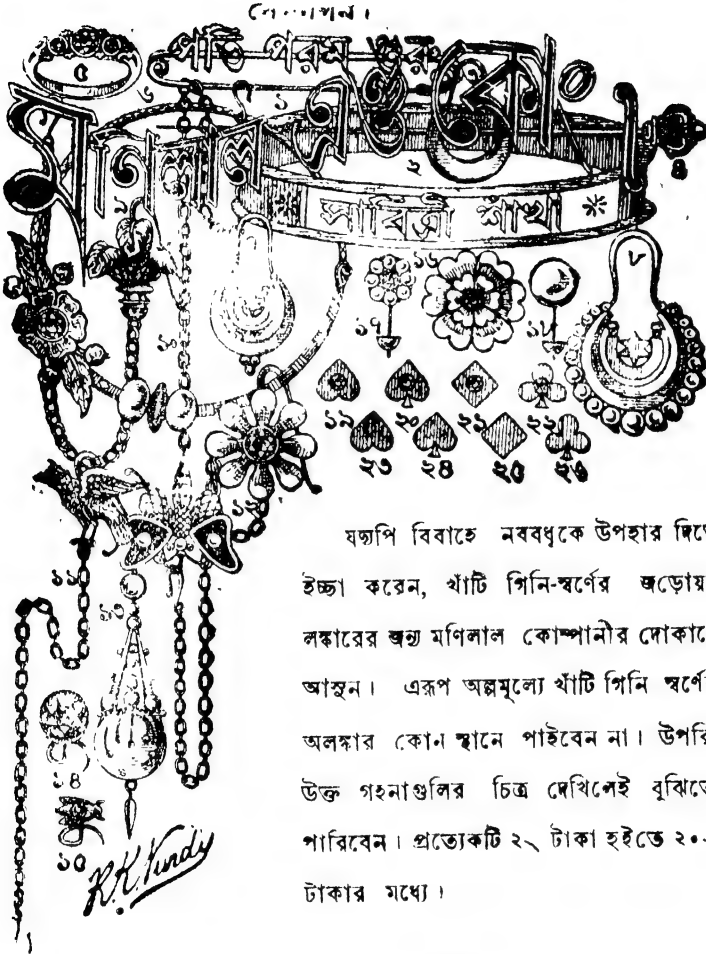 পতি পরম গুরু
মণিলাল এণ্ড কোং
* সাবিত্রী শাঁখা *
৫
৬
১
২
৪
৯
১৬
৮
১০
১৭
১৮
১৯ ২০ ২১ ২২
২৩ ২৪ ২৫ ২৬
১২
১১
১৩
১৪
১৫
R.K. Nundy
যদ্যপি বিবাহে নববধূকে উপহার দিতে
ইচ্ছা করেন, খাঁটি গিনি-স্বর্ণের জড়োয়া
লঙ্কারের জন্য মণিলাল কোম্পানীর দোকানে
আসুন। এরূপ অল্পমূল্যে খাঁটি গিনি স্বর্ণের
অলঙ্কার কোন স্থানে পাইবেন না। উপরি
উক্ত গহনাগুলির চিত্র দেখিলেই বুঝিতে
পারিবেন। প্রত্যেকটি ২৲ টাকা হইতে ২০৲
টাকার মধ্যে।